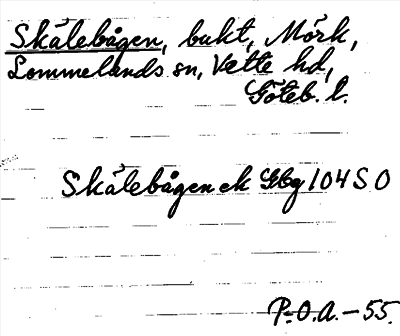 Skålebågen, bukt, Mörk,
Lommelands sn, Vette hd,
Göteb. l.
Skålebågen ek Gbg 104 S O
P.O.A. – 55.